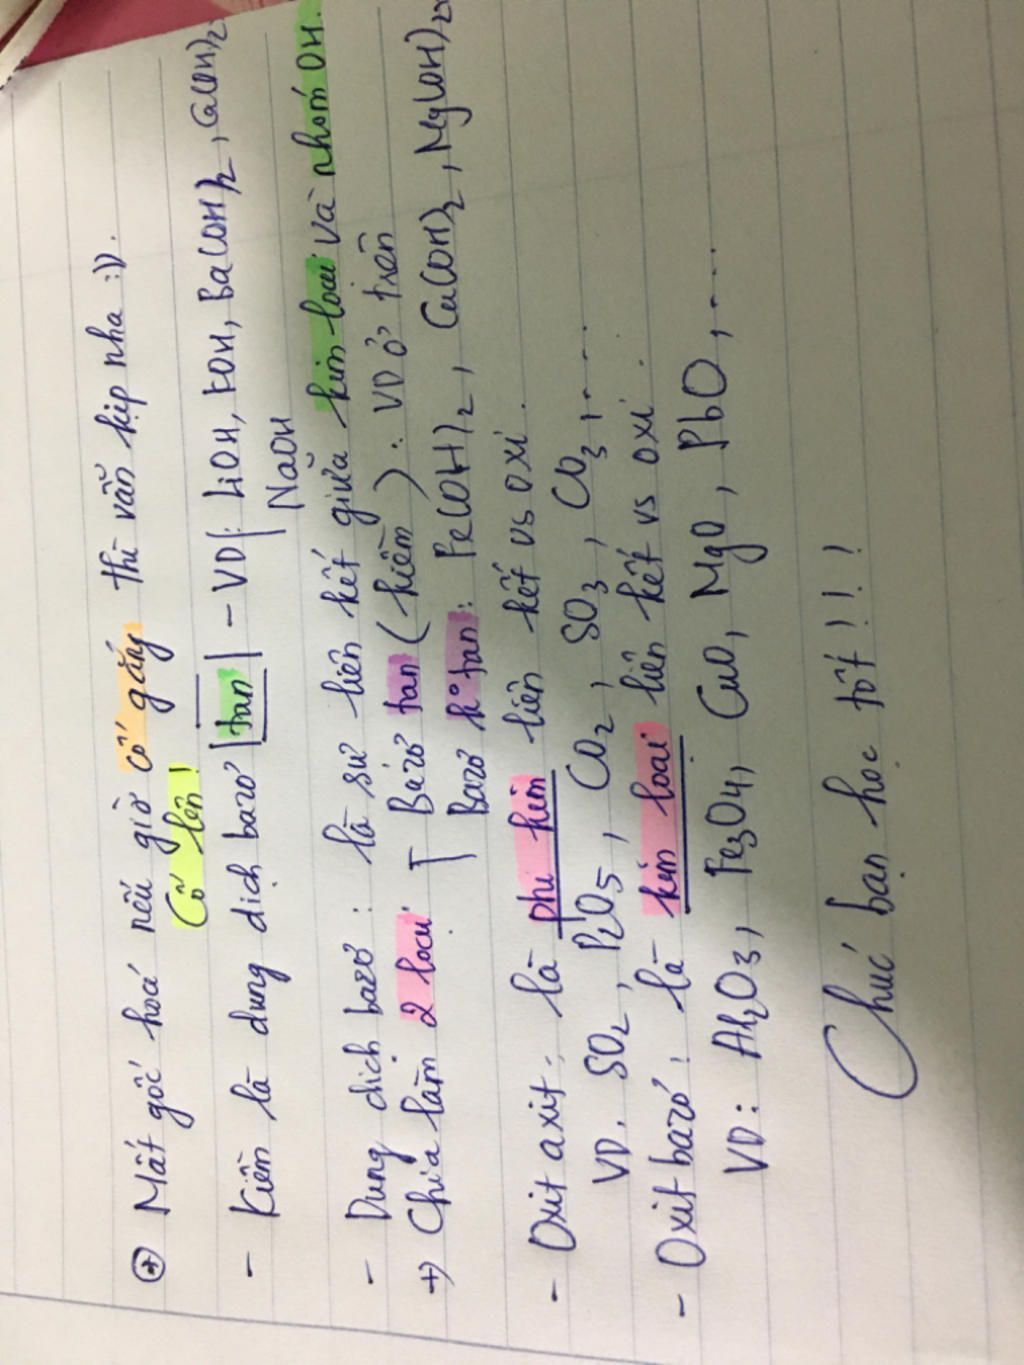 ⊕ Mất gốc hoá nếu giờ cố gắng thì vẫn kịp nha :)).
Cố lên!
- Kiềm là dung dịch bazơ tan - VD: LiOH, KOH, Ba(OH)2, Ca(OH)2
NaOH
- Dung dịch bazơ: là sự liên kết giữa kim loại và nhóm OH.
+) Chia làm 2 loại Bazơ tan (kiềm): VD ở trên
Bazơ ko tan: Fe(OH)2, Cu(OH)2, Mg(OH)2
- Oxit axit: là phi kim liên kết vs oxi.
VD. SO2, P2O5, CO2, SO3, CO3,....
- Oxit bazơ: là kim loại liên kết vs oxi.
VD: Al2O3, Fe3O4, CuO, MgO, PbO,....
Chúc bạn học tốt!!!